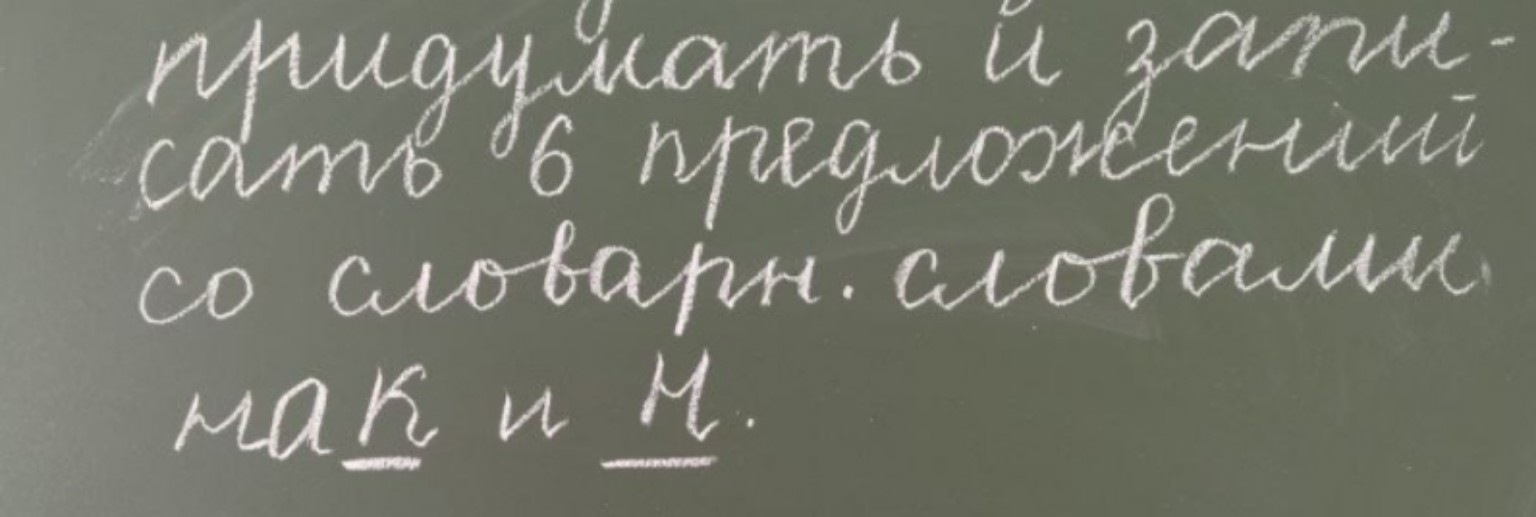 придумать и запи-
сать 6 предложений
со словарн. словами
на К и Н.